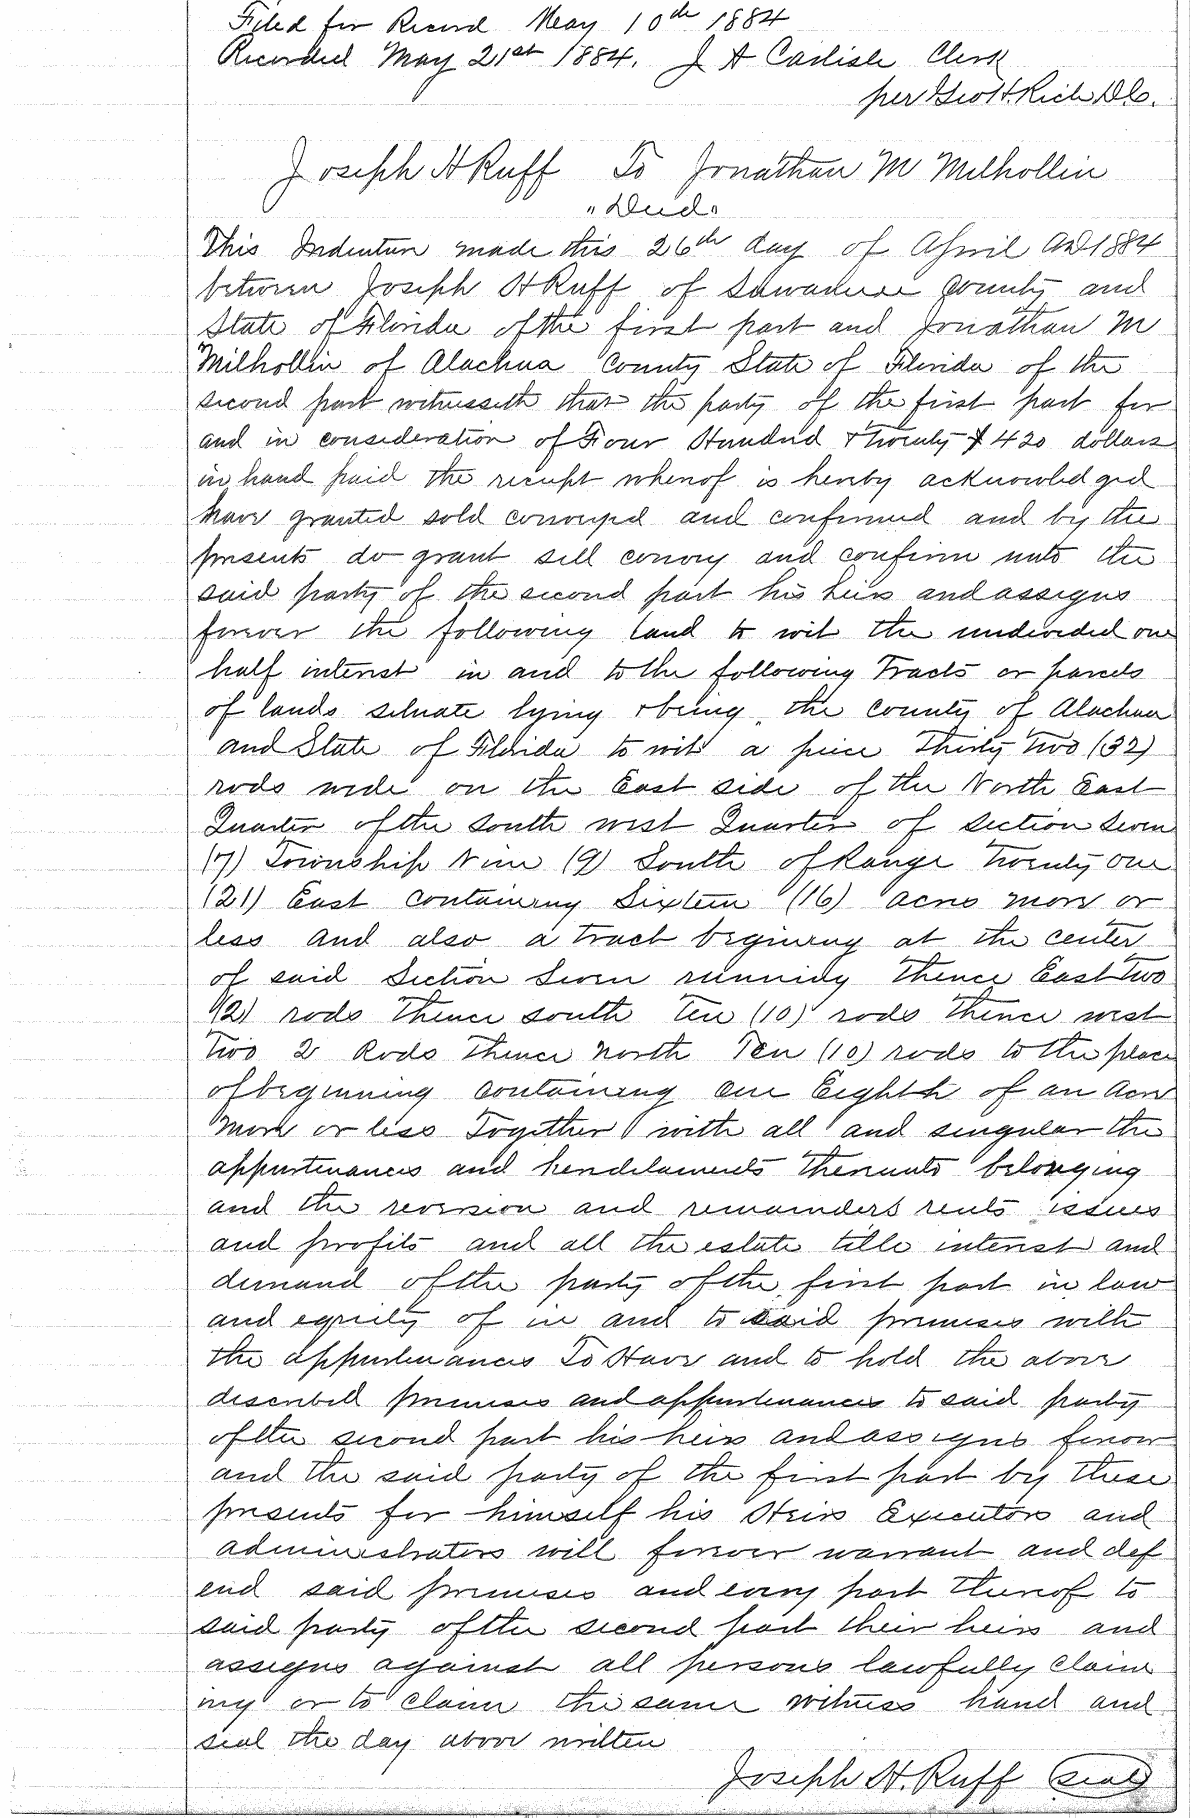 Filed for Record May 10th 1884
Recorded May 21st 1884. J A Carlisle Clerk
per Geo H. Rich D.C.
Joseph H Ruff To Jonathan M Milhollin
"Deed"
This Indenture made this 26th day of April AD 1884
between Joseph H Ruff of Suwannee County and
State of Florida of the first part and Jonathan M
Milhollin of Alachua County State of Florida of the
second part witnesseth that the party of the first part for
and in consideration of Four Hundred & twenty $420 dollars
in hand paid the receipt whereof is hereby acknowledged
have granted sold conveyed and confirmed and by the
presents do grant sell convey and confirm unto the
said party of the second part his heirs and assigns
forever the following land to wit the undivided one
half interest in and to the following Tracts or parcels
of lands situate lying & being the county of Alachua
and State of Florida to wit a piece Thirty Two (32)
rods wide on the East side of the North East
Quarter of the South west Quarter of Section Seven
(7) Township Nine (9) South of Range Twenty One
(21) East containing Sixteen (16) acres more or
less and also a tract begining at the center
of said Section Seven running thence East Two
(2) rods Thence south Ten (10) rods Thence west
Two 2 Rods Thence North Ten (10) rods to the place
of beginning containing one Eighth of an acre
more or less Together with all and singular the
appurtenances and hereditaments thereunto belonging
and the reversion and remainders rents issues
and profits and all the estate title interest and
demand of the party of the first part in law
and equity of in and to said premises with
the appurtenances To Have and to hold the above
described premises and appurtenances to said party
of the second part his heirs and assigns forever
and the said party of the first part by these
presents for himself his Heirs Executors and
administrators will forever warrant and def
end said premises and every part thereof to
said party of the second part their heirs and
assigns against all persons lawfully claim
ing or to claim the same witness hand and
seal the day above written
Joseph H. Ruff (seal)